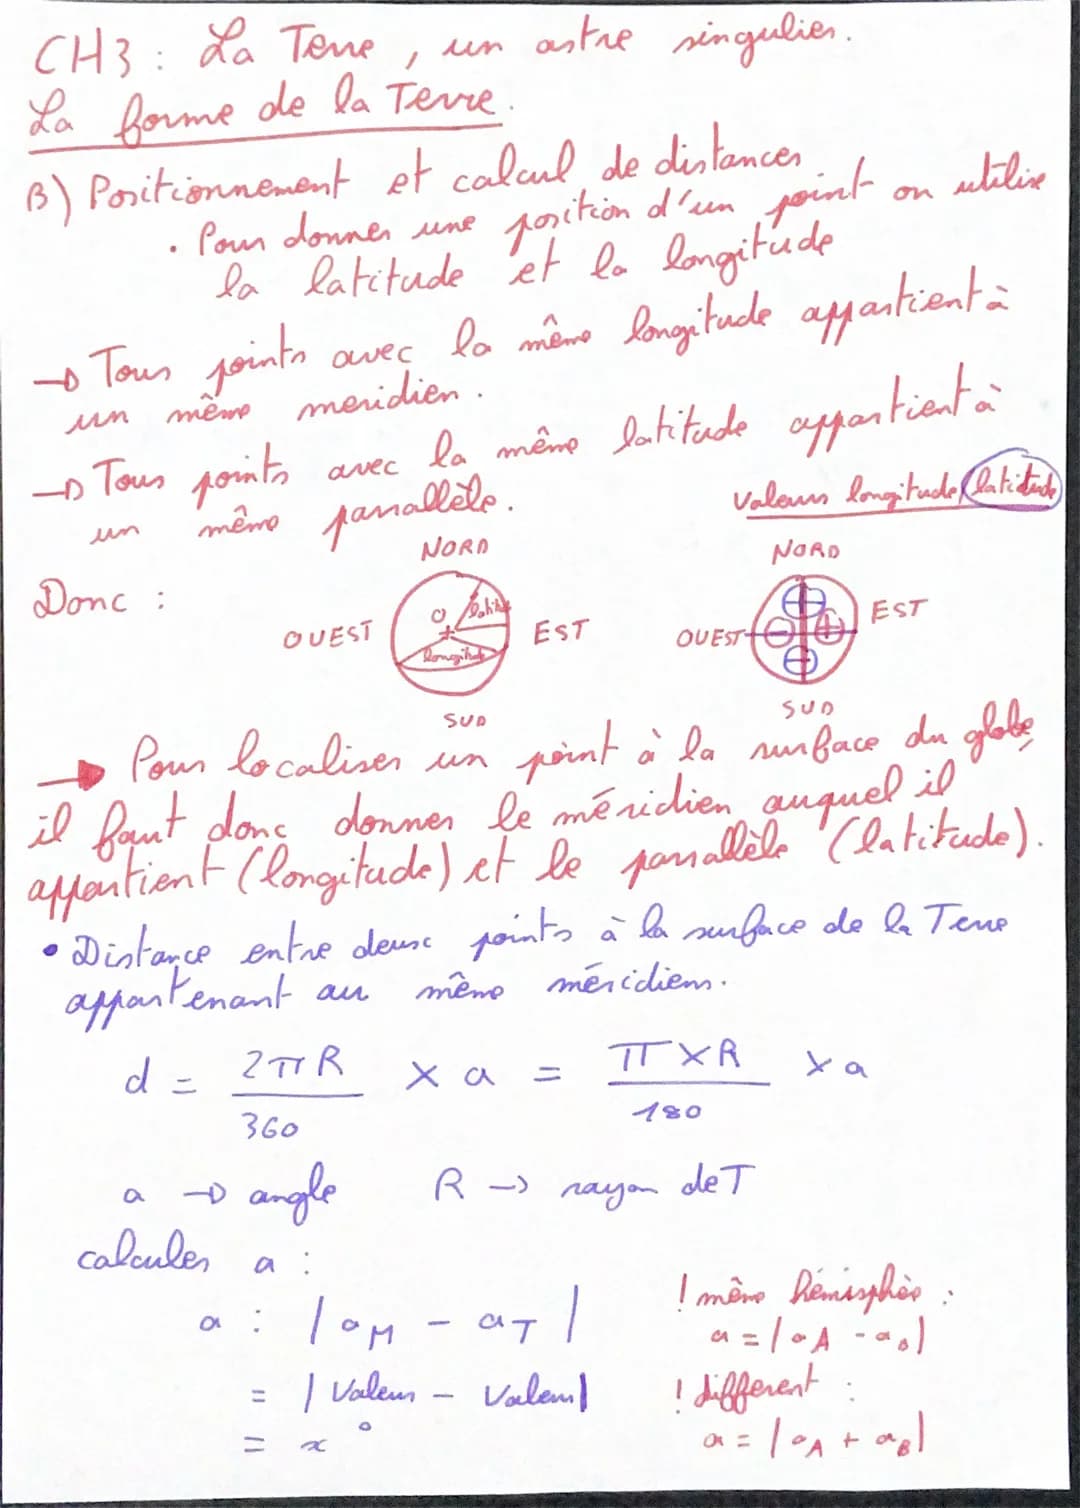 CH3 : La Terre, un astre singulier.
La forme de la Terre.
B) Positionnement et calcul de distances
• Pour donner une position d'un point on utilise
la latitude et la longitude
→ Tous points avec la même longitude appartient à
un même meridien.
→ Tous points avec la même latitude appartient à
un même parrallèle.
Valeurs longitude/latitude
Donc :
NORD
OUEST
O
latitude
longitude
EST
SUD
NORD
OUEST
+
-
+
-
EST
SUD
→ Pour localiser un point à la surface du globe,
il faut donc donner le méridien auquel il
appartient (longitude) et le parrallèle (latitude).
• Distance entre deux points à la surface de la Terre
appartenant au même méridiens.
d = 2πR/360 × a = π×R/180 × a
a → angle R → rayon de T
calculer a :
a : |aM - aT|
= |Valeur - Valeur|
= x°
! même hémisphère :
a = |aA - aB|
! différent :
a = |aA + aB|